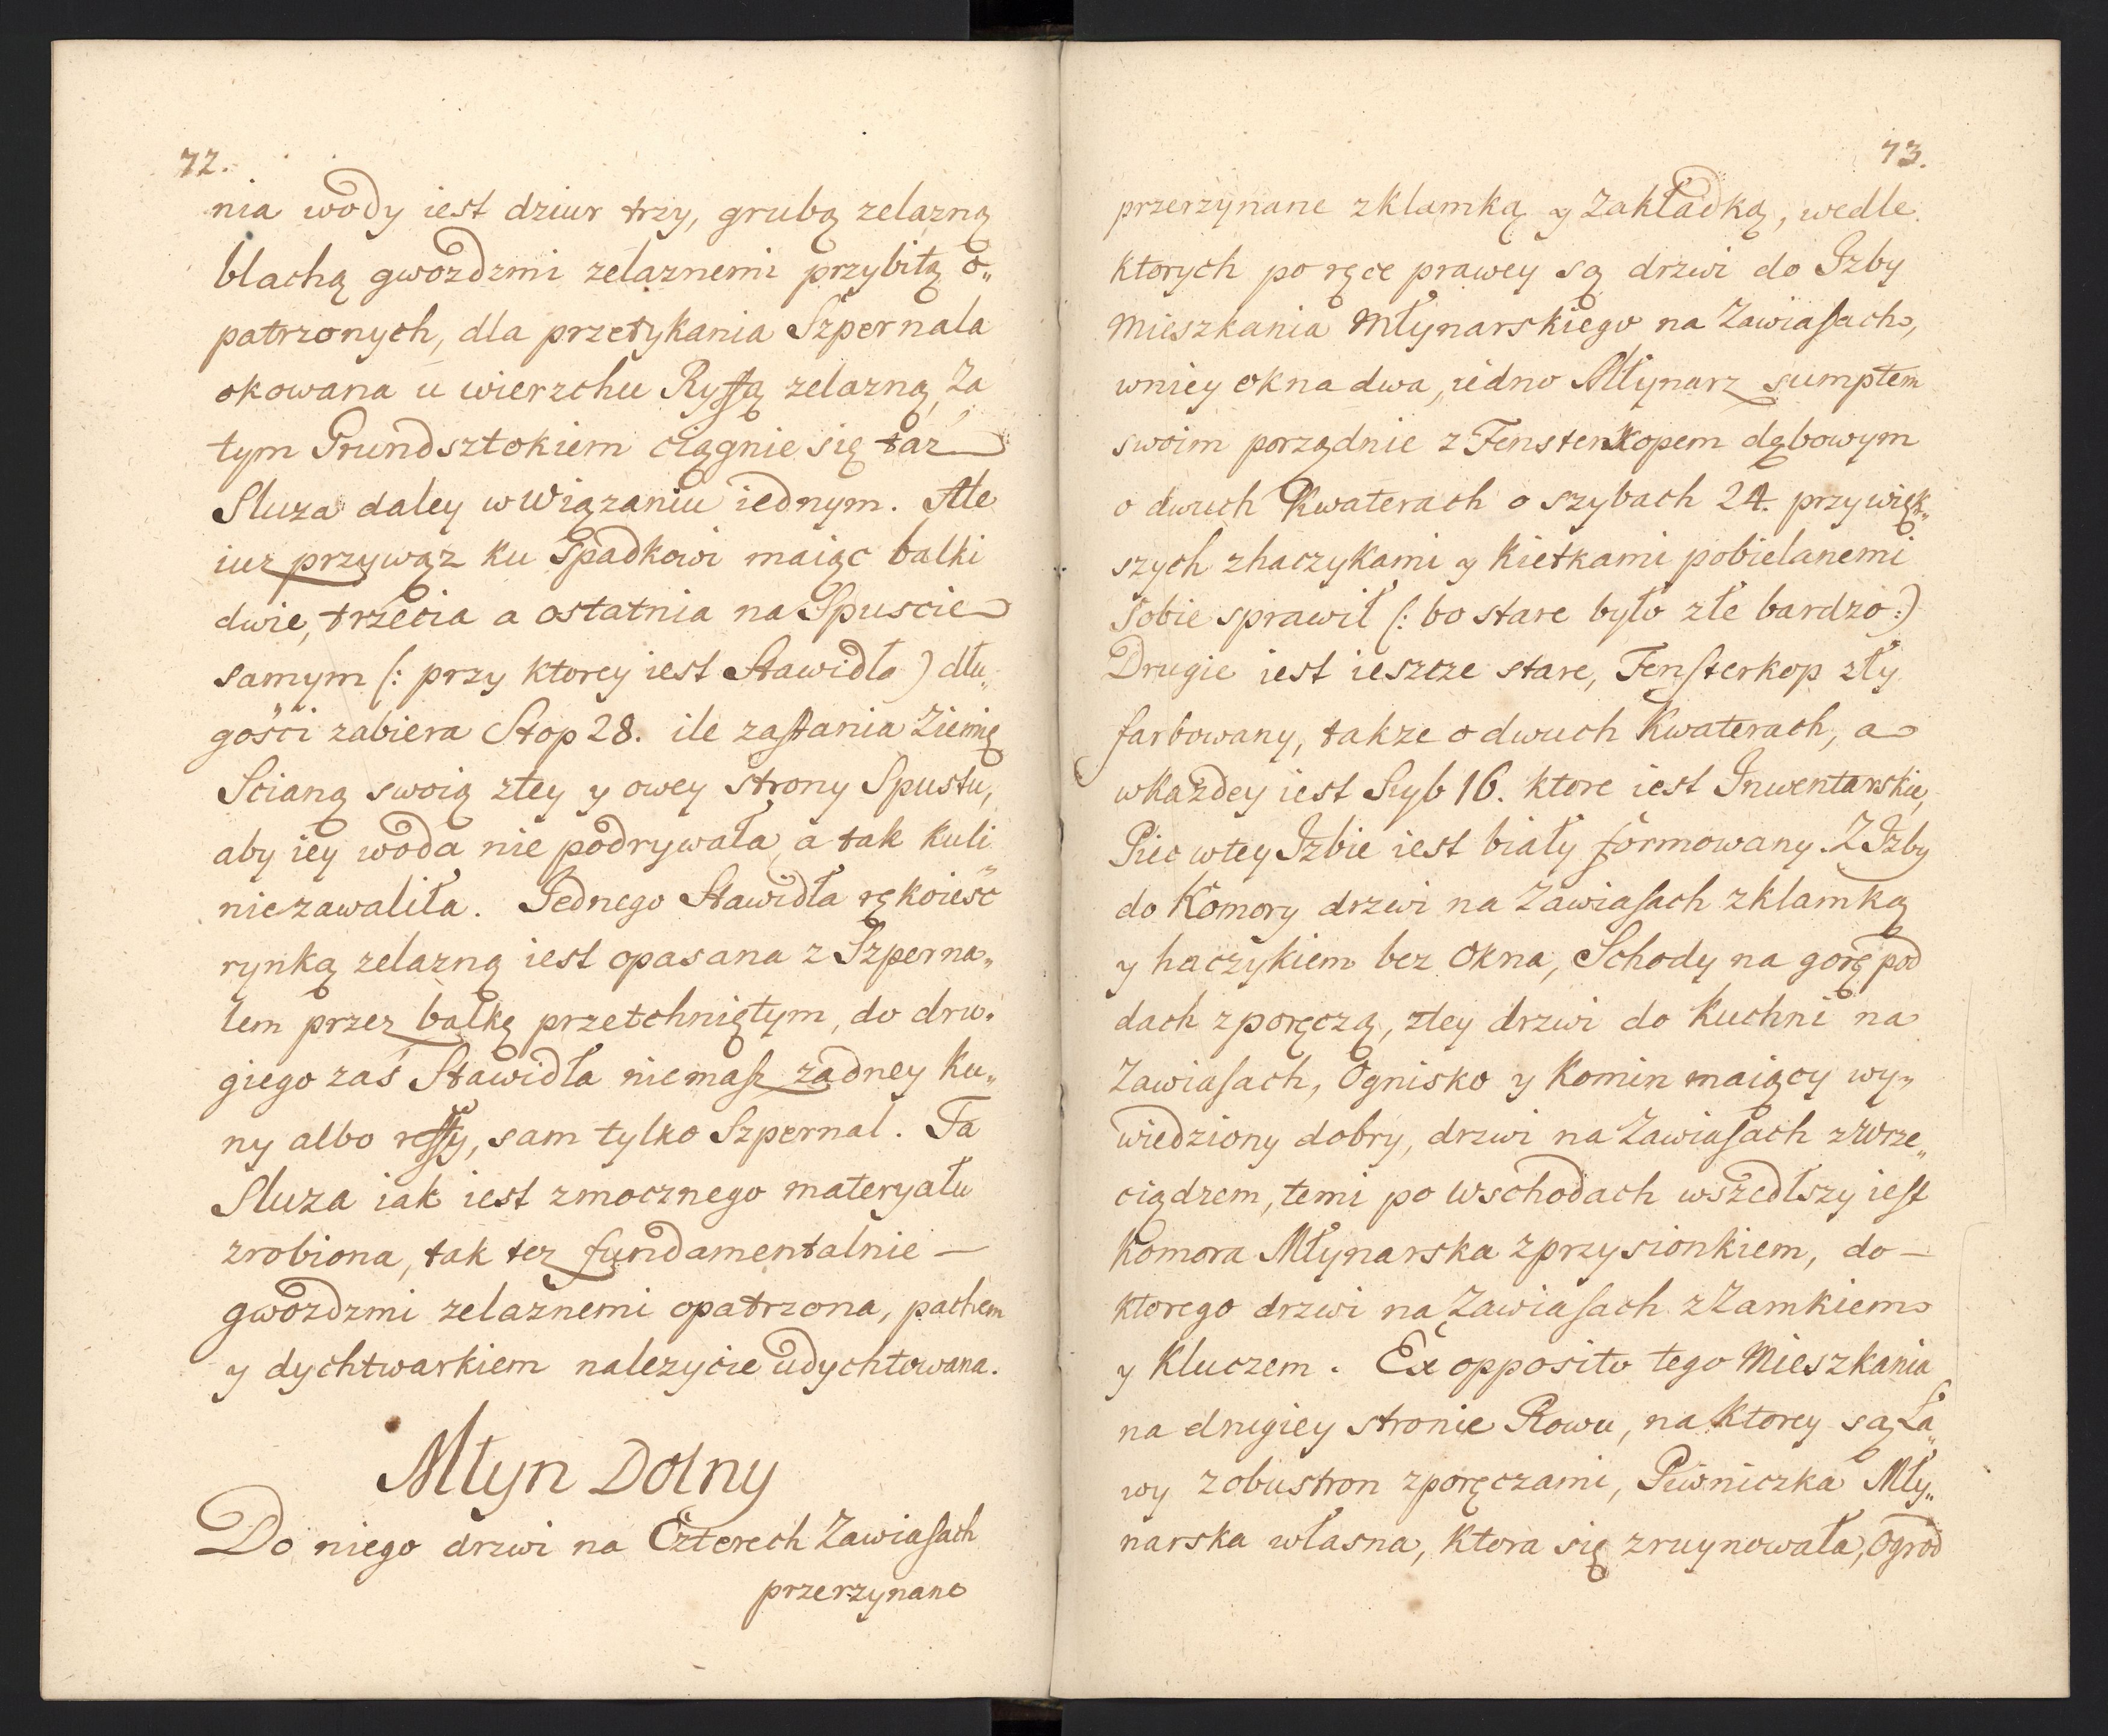 72.
nia wody iest dziur trzy, grubą zelazną
blachą gwozdzmi zelaznemi przybitą o„
patrzonych, dla przetykania Szpernala
okowana u wierzchu Ryffą zelazną, Za
tym Grundsztokiem ciągnie się taz
Sluza daley w Wiązaniu iednym. Ale
iuz przywąz ku Spadkowi maiąc balki
dwie, trzecia a ostatnia na Spuscie
samym (: przy ktorey iest Stawidło ) dłu„
gości zabiera Stop 28. ile zastania Ziemię
Scianą swoią ztey y owey strony Spustu,
aby iey woda nie podrywała, a tak kuli
nie zawaliła. Jednego Stawidła rękoieść
rynką zelazną iest opasana z Szperna„
lem przez balkę przetchniętym, do dru„
giego zaś Stawidła niemasz zadney Ku„
ny albo reffy, sam tylko Szpernal. Ta
Sluza iak iest zmocznego materyału
zrobiona, tak tez fundamentalnie —
gwozdzmi zelaznemi opatrzona, pachem
y dychtwarkiem nalezycie udychtowana.
Młyn Dolny
Do niego drzwi na Czterech Zawiasach
przerzynane
73.
przerzynane z klamką y Zakładką, wedle
ktorych po ręce prawey są drzwi do Izby
Mieszkania Młynarskiego na Zawiasach,
wniey okna dwa, iedno Młynarz sumptem
swoim porządnie z Fensterkopem dębowym
o dwuch Kwaterach o szybach 24. przy więk„
szych z haczykami y Kietkami pobielanemi
sobie sprawił (: bo stare było złe bardzo :)
Drugie iest ieszcze stare, Fensterkop zły
farbowany, takze o dwuch Kwaterach, a
wkażdey iest Szyb 16. ktore iest Inwentarskie,
Piec wtey Izbie iest biały formowany. Z Izby
do Komory drzwi na Zawiasach z klamką
y haczykiem bez Okna, Schody na gorę pod
dach z poręczą, ztey drzwi do Kuchni na
Zawiasach, Ognisko y Komin maiący wy„
wiedziony dobry, drzwi na Zawiasach z Wrze„
ciądzem, temi po Wschodach wszedłszy iest
Komora Młynarska z przysionkiem, do —
ktorego drzwi na Zawiasach z Zamkiem
y Kluczem. Ex opposito tego Mieszkania
na drugiey stronie Rowu, na ktorey są Ła„
wy z obustron z poręczami, Piwniczka Mły„
narska własna, ktora się zruynowała, Ogrod